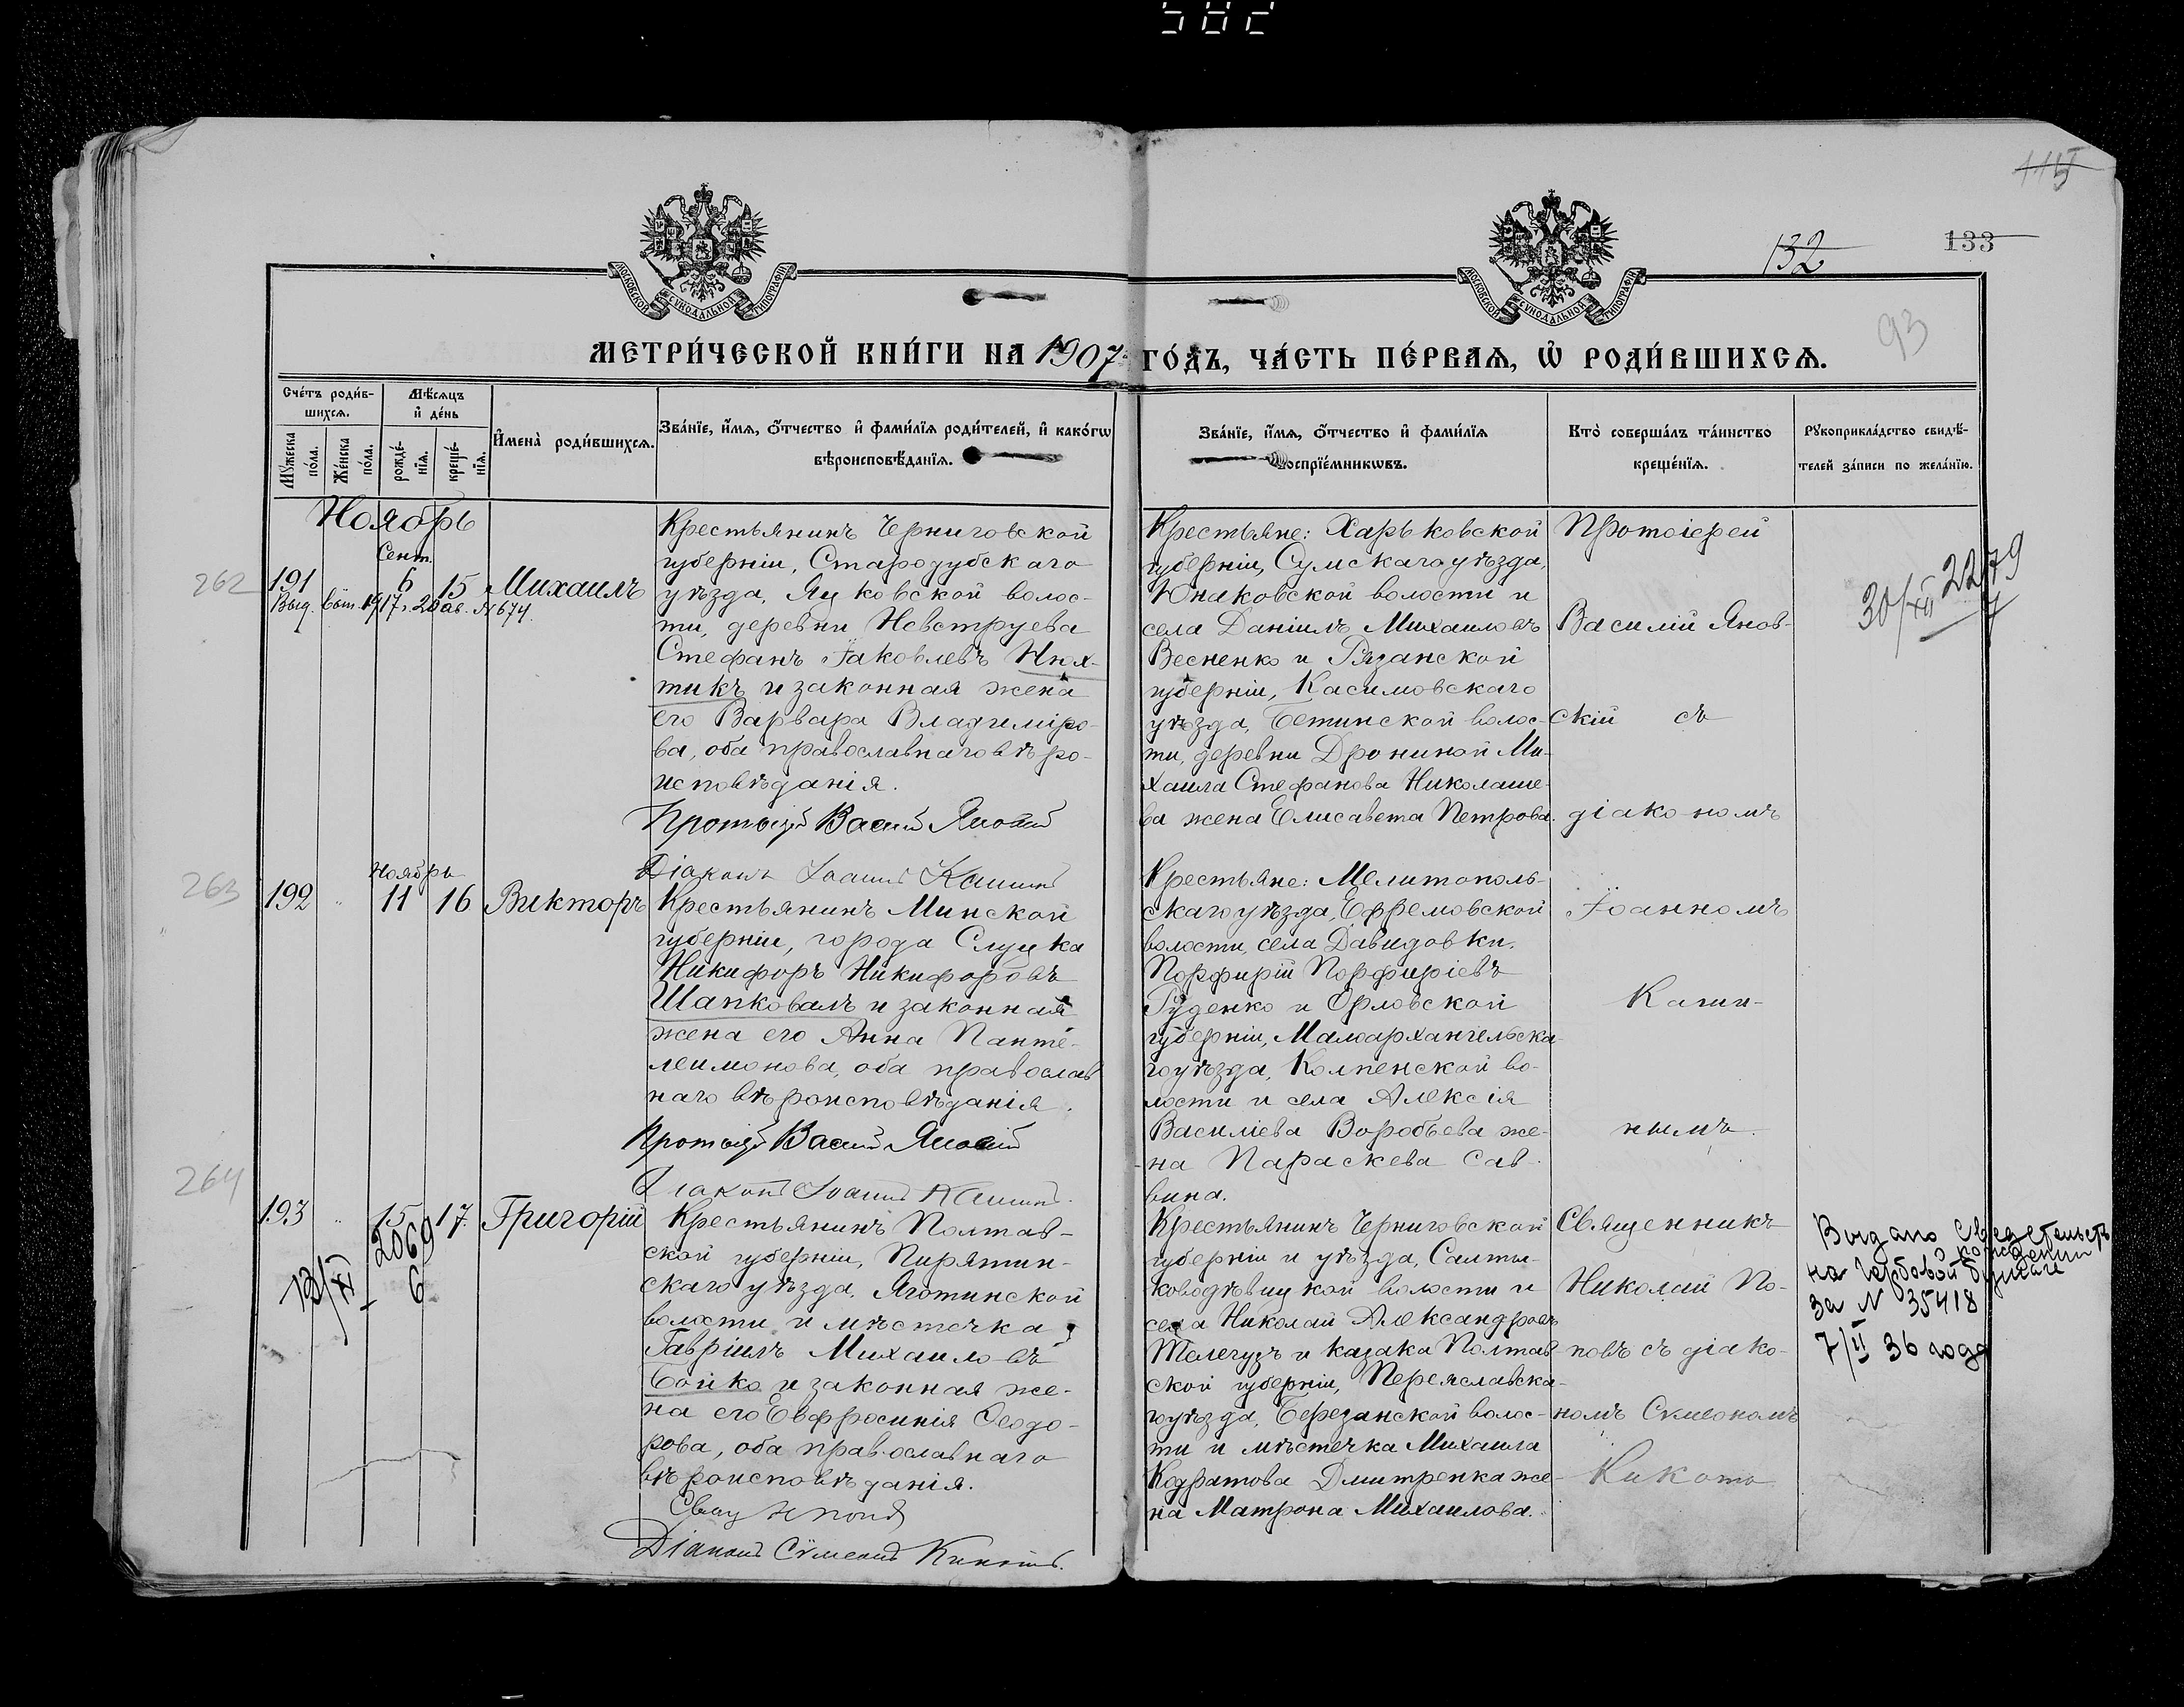 582
115
132
133
93
МОСКОВСКОЙ СѴНОДАЛЬНОЙ ТИПОГРАФІИ
МОСКОВСКОЙ СѴНОДАЛЬНОЙ ТИПОГРАФІИ
МЕТРИ́ЧЕСКОЙ КНИ́ГИ НА 1907 ГО́ДЪ, ЧА́СТЬ ПЕ́РВАѦ, Ѡ҆ РОДИ́ВШИХСѦ.
Сче́тъ роди́в-
шихсѧ.
Мꙋ́жеска
по́ла.
Же́нска
по́ла.
Мѣ́сѧцъ
и҆ де́нь
рожде́-
нїѧ.
креще́-
нїѧ.
И҆мена̀ роди́вшихсѧ.
Зва́нїе, и҆́мѧ, ѻ҆́тчество и҆ фами́лїѧ роди́телей, и҆ како́гѡ
вѣроисповѣ́данїѧ.
Зва́нїе, и҆́мѧ, ѻ҆́тчество и҆ фами́лїѧ
воспрїе́мникѡвъ.
Кто̀ соверша́лъ та́инство
креще́нїѧ.
Рꙋкоприкла́дство свидѣ́-
телей за́писи по жела́нїю.
Ноябрь
Сент.
262
191
6
15
Михаилъ
Выд. вып. 1917 г. 20 ав. № 674
Крестьянинъ Черниговской
губерніи, Стародубскаго
уѣзда, Яцковской волос-
ти, деревни Невструева
Стефанъ Іаковлевъ Нюх-
тикъ и законная жена
его Варвара Владиміро-
ва, оба православнаго вѣро-
исповѣданія.
Протоіерей Василій Яновскій
Діаконъ Іоаннъ Кашинъ
Крестьяне: Харьковской
губерніи, Сумскаго уѣзда,
Юнаковской волости и
села Даніилъ Михаиловъ
Весненко и Рязанской
губерніи, Касимовскаго
уѣзда, Бетинской волос-
ти, деревни Дрониной Ми-
хаила Стефанова Николаше-
ва жена Елисавета Петрова.
Протоіерей
Василій Янов-
скій съ
діакономъ
30/XII 2279
7
263
Ноябрь
192
"
11
16
Викторъ
Крестьянинъ Минской
губерніи, города Слуцка
Никифоръ Никифоровъ
Шапковалъ и законная
жена его Анна Панте-
леимонова, оба православ
наго вѣроисповѣданія.
Протоіерей Василій Яновскій
Діаконъ Іоаннъ Кашинъ.
Крестьяне: Мелитополь-
скаго уѣзда, Ефремовской
волости, села Давидовки,
Порфирій Порфиріевъ
Руденко и Орловской
губерніи, Малоархангельска-
го уѣзда, Колпенской во-
лости и села Алексія
Василіева Воробьева же-
на Параскева Сав-
вина.
Іоанномъ
Каши-
нымъ.
264
193
"
15
17
Григорій
2069
6
13/XI
Крестьянинъ Полтав-
ской губерніи, Пирятин-
скаго уѣзда, Яготинской
волости и мѣстечка
Гавріилъ Михаиловъ
Бойко и законная же-
на его Евфросинія Ѳеодо-
рова, оба православнаго
вѣроисповѣданія.
Свящ Н Поповъ
Діаконъ Сѵмеонъ Кикоть.
Крестьянинъ Черниговской
губерніи и уѣзда, Салты-
ководѣвицкой волости и
села Николай Александровъ
Телегузъ и казака Полтав-
ской губерніи, Переяславска-
го уѣзда, Березанской волос-
ти и мѣстечка Михаила
Кодратова Дмитренка же-
на Матрона Михаилова.
Священникъ
Николай По-
повъ съ діако-
номъ Сѵмеономъ
Кикоть
Выдано Свидетельств
о рождении
на Гербовой бумаге
за № 35418
7/II 36 года